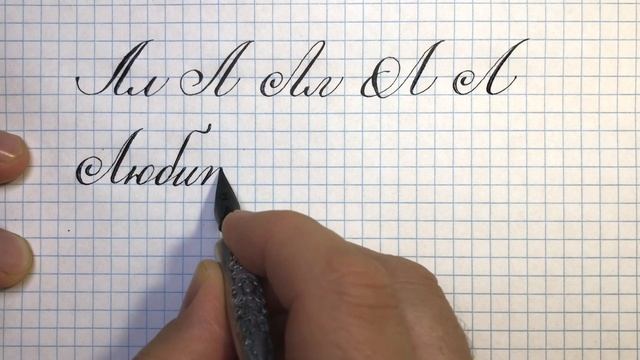 Лл Л Лл Л Л
Любит